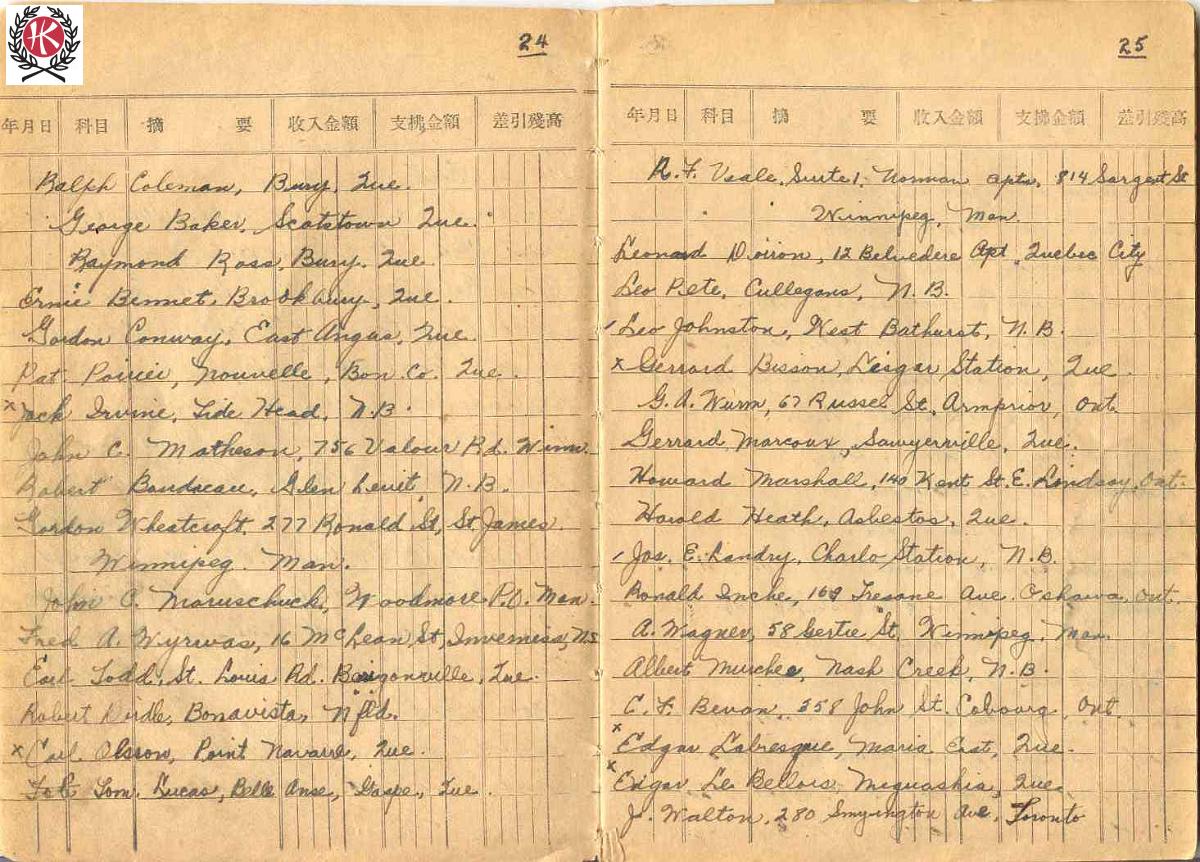 HK
24
年月日 科目 摘 要 收入金額 支拂金額 差引殘高
Ralph Coleman, Bury, Que.
George Baker, Scotstown Que.
Raymond Ross, Bury. Que.
Ernie Bennet, Brookbury, Que.
Gordon Conway, East Angus, Que.
Pat Poirier, Nouvelle, Bon. Co. Que.
x Jack Irvine, Tide Head, N.B.
John C. Matheson, 756 Valour Rd. Winn.
Robert Boudreau, Glen Levit, N.B.
Gordon Wheatcroft, 277 Ronald St, St. James
Winnipeg. Man.
John C. Maruschuck, Woodmore P.O. Man.
Fred A. Wyrwas, 16 McLean St, Inverness, N.S
Earl Todd, St. Louis Rd. Que.
Robert Bonavista, Nfld.
x Carl Olsson, Point Navarre, Que.
Tom. Lucas, Belle Anse, Gaspe, Que
25
年月日 科目 摘 要 收入金額 支拂金額 差引殘高
R.F. Veale, Suite 1, Norman apts, 814 Sargent St
Winnipeg, Man.
Leonard Doiron, 12 Belvedere Apt, Quebec City
Leo Cullegans, N.B.
Leo Johnston, West Bathurst, N.B.
x Gerrard Bisson, Lisgar Station, Que.
G.A. Wurm, 67 Russel St, Arnprior, Ont
Gerrard Marcoux, Sawyerville, Que.
Howard Marshall, 140 Kent St. E. Lindsay, Ont.
Harold Heath, Asbestos, Que.
Jos. E. Landry, Charlo Station, N.B.
Ronald Inche, 169 Ave Oshawa, Ont.
A. Wagner, 58 Gertie St. Winnipeg. Man.
Albert Murchee, Nash Creek, N.B.
C.F. Bevan, 358 John St. Cobourg, Ont
x Edgar Labresque, Maria East, Que.
x Edgar Le Bellois Miguashia, Que.
J. Walton, 280 Ave. Toronto